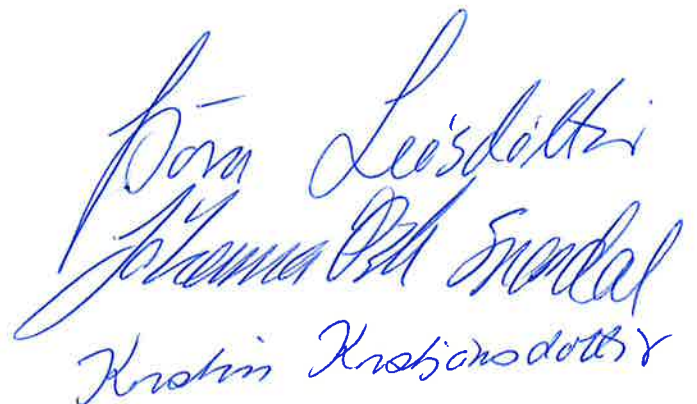 Þóra Leósdóttir
Jóhanna Ösk Snædal
Kristín Kristjánsdóttir